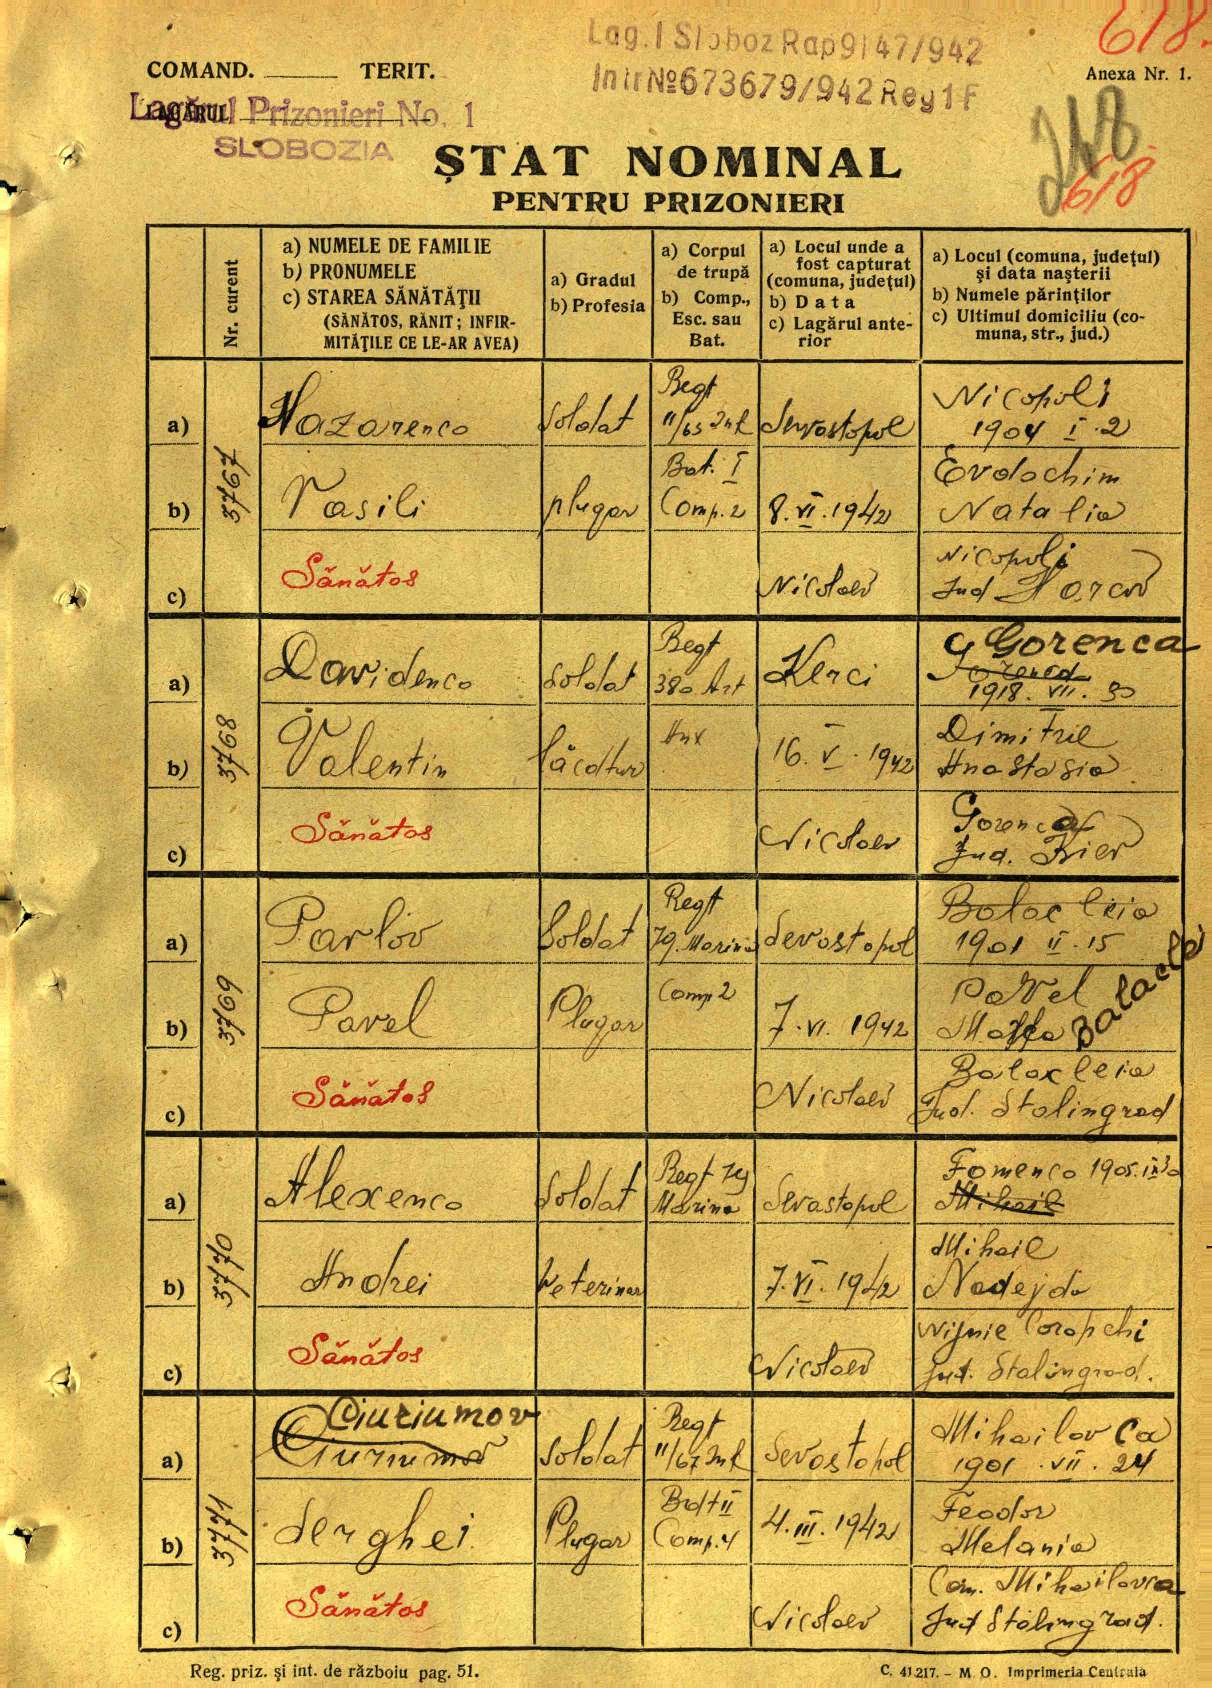 618.
Lag. I Sloboz Rap 9147/942
Intr № 673679/942 Reg 1 F
COMAND. ______ TERIT.
Anexa Nr. 1.
LAGĂRUL
Lagărul Prizonieri No. 1
SLOBOZIA
248
618
ȘTAT NOMINAL
PENTRU PRIZONIERI
Nr. curent
a) NUMELE DE FAMILIE
b) PRONUMELE
c) STAREA SĂNĂTĂȚII
(SĂNĂTOS, RĂNIT; INFIR-
MITĂȚILE CE LE-AR AVEA)
a) Gradul
b) Profesia
a) Corpul
de trupă
b) Comp.,
Esc. sau
Bat.
a) Locul unde a
fost capturat
(comuna, județul)
b) Data
c) Lagărul ante-
rior
a) Locul (comuna, județul)
și data nașterii
b) Numele părinților
c) Ultimul domiciliu (co-
muna, str., jud.)
3767
a) Nazarenco Soldat Regt 11/65 Inf Sevastopol Nicopoli
1904 I 2
b) Vasili plugar Bat. I Comp. 2 8.VI.1942 Evdochim
Natalia
c) Sănătos Nicolaev Nicopoli
Jud Harcov
3768
a) Davidenco Soldat Regt 380 Art Kerci Gorenca
1918.VII.30
b) Valentin lăcătur 16.V.1942 Dimitrie
Anastasia
c) Sănătos Nicolaev Gorenca
Jud. Kiev
3769
a) Pavlov Soldat Regt 79. Marina Sevostopol Balacleia
1901 II.15
b) Pavel Plugar Comp 2 7.VI.1942 Pavel
Balaclea
c) Sănătos Nicolaev Balacleia
Jud. Stalingrad
3770
a) Alexenco Soldat Regt 79 Marina Sevastopol Fomenco 1905.
Mihail
b) Andrei Veterinar 7.VI.1942 Mihail
Nadejda
c) Sănătos Nicolaev Nijnie
Jud. Stalingrad.
3771
Ciuriumov
a) Ciuriumov Soldat Regt 11/67 Inf Sevostopol Mihailovca
1901.VII.24
b) Serghei Plugar Bat II Comp. 4 4.III.1942 Feodor
Melania
c) Sănătos Nicolaev Com. Mihailovca
Jud Stalingrad.
Reg. priz. și int. de războiu pag. 51.
C. 41.217. - M. O. Imprimeria Centrala